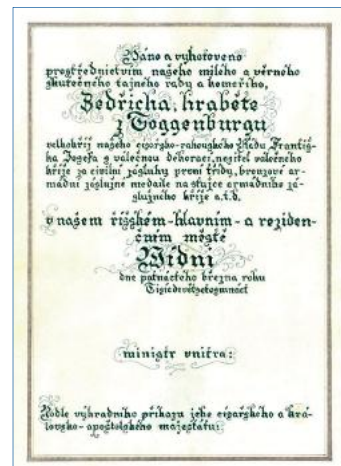 Dáno a vyhotoveno
prostřednictvím našeho milého a věrného
skutečného tajného rady a komořího,
Bedřicha, hraběte
z Toggenburgu
velkokříž našeho císařsko-rakouského Řádu Františ
ka Josefa s válečnou dekorací, nositel válečného
kříže za civilní zásluhy první třídy, bronzové ar-
mádní záslužné medaile na stužce armádního zá-
služného kříže a.t.d.
v našem říšském-hlavním- a residen-
čním městě
Vídni
dne patnáctého března roku
Tisícidevětsetosmnáct
ministr vnitra:
Podle výhradního příkazu jeho císařského a krá-
lovsko-apoštolského majestátu: